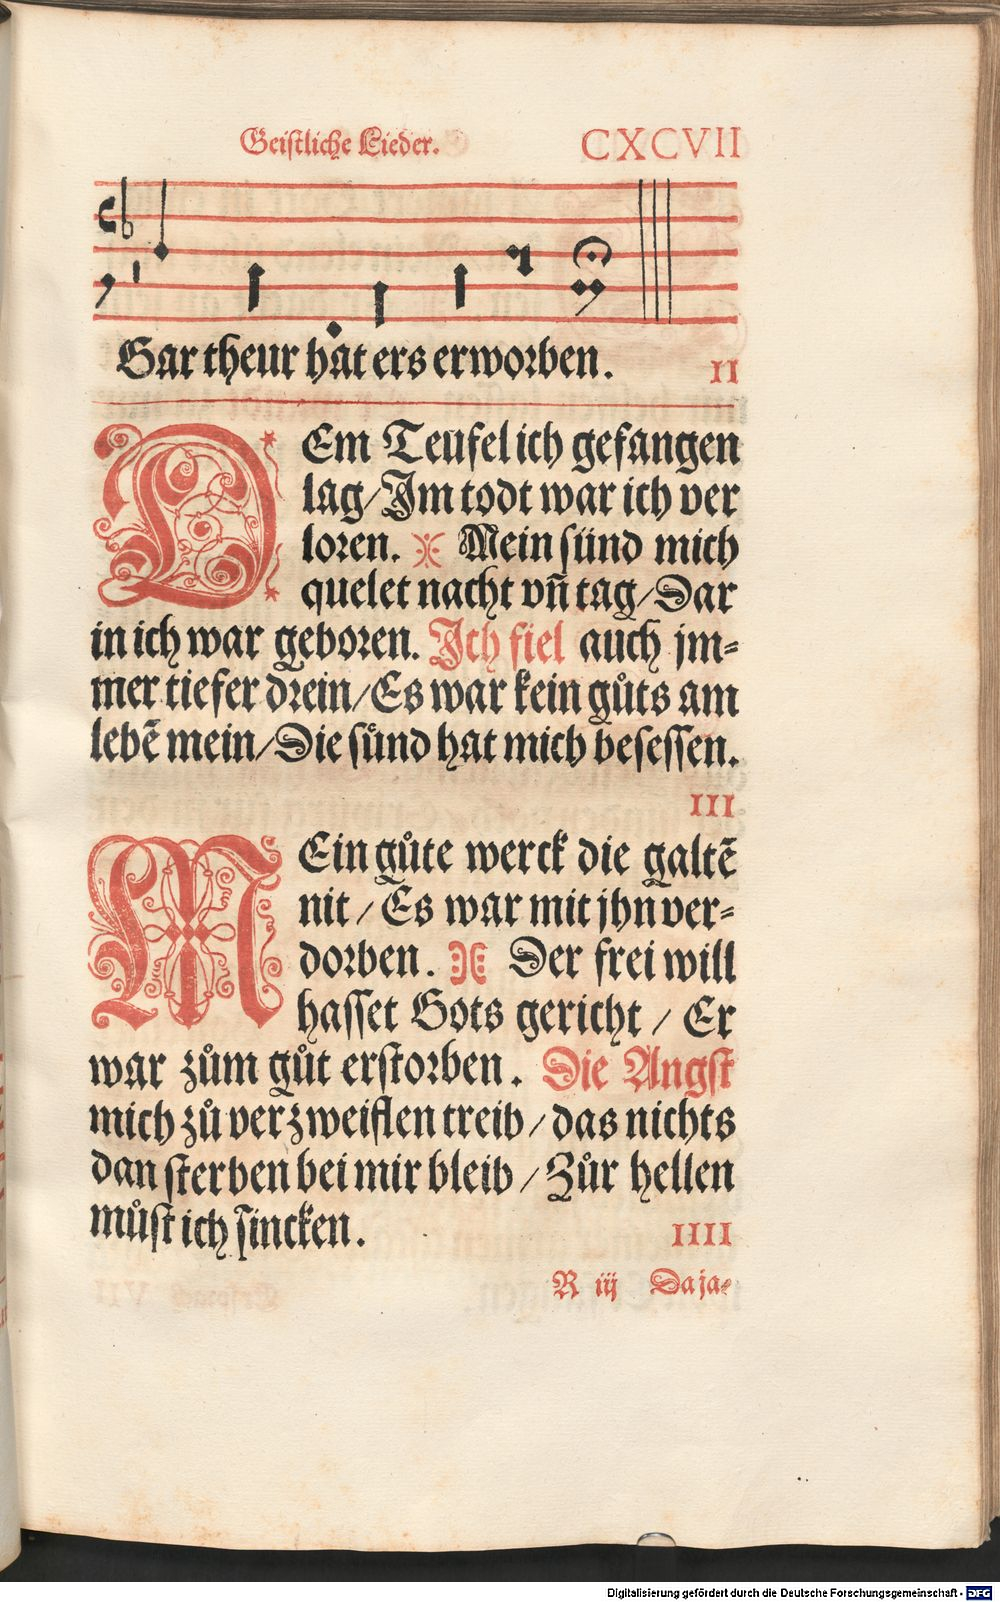 Geistliche Lieder. CXCVII
Gar theur hat ers erworben. II
DEm Teufel ich gefangen
lag/Im todt war ich ver
loren. Mein sünd mich
quelet nacht vñ tag/Dar
in ich war geboren. Ich fiel auch jm-
mer tiefer drein/Es war kein gůts am
lebẽ mein/Die sünd hat mich besessen.
III
MEin gůte werck die galtẽ
nit/Es war mit jhn ver-
dorben. Der frei will
hasset Gots gericht/Er
war zům gůt erstorben. Die Angst
mich zů verzweiflen treib/das nichts
dan sterben bei mir bleib/Zůr hellen
můst ich sincken. IIII
R iij Da ja-
Digitalisierung gefördert durch die Deutsche Forschungsgemeinschaft - DFG